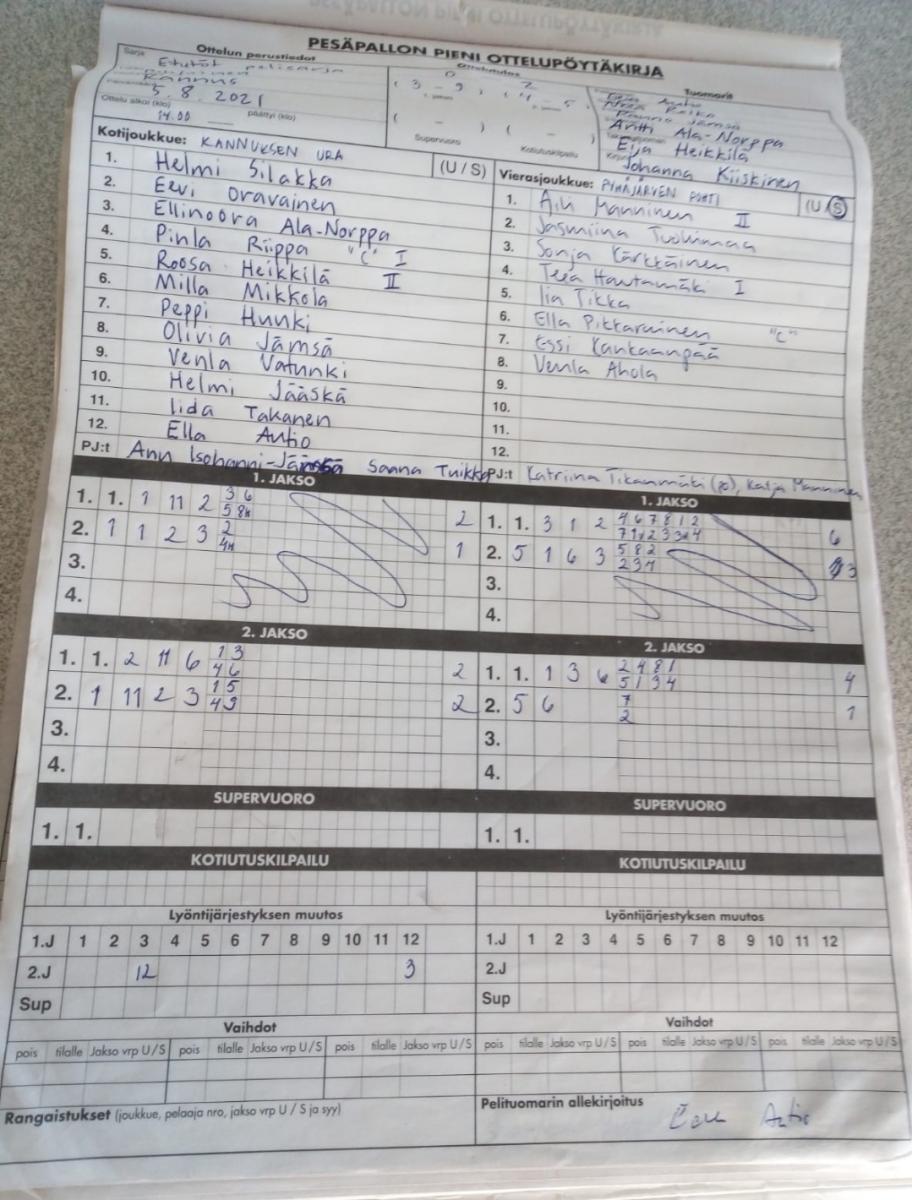 PESÄPALLON PIENI OTTELUPÖYTÄKIRJA
Sarja
Ottelun perustiedot
Tuomarit
Kannus
5.8.2021
Ottelu alkoi (klo) 14.00 päättyi (klo)
0 2
(3 - 9, (4 - 5)
( - ) ( - )
Supervuoro Kotiutuskilpailu
Antti Ala-Norppa
Eija Heikkilä
Johanna Kiiskinen
Kotijoukkue: KANNUKSEN URA (U / S)
1. Helmi Silakka
2. Eevi Oravainen
3. Ellinoora Ala-Norppa
4. Pinla Riippa "C" I
5. Roosa Heikkilä II
6. Milla Mikkola
7. Peppi Hunki
8. Olivia Jämsä
9. Venla Vatunki
10. Helmi Jääskä
11. Iida Takanen
12. Ella Autio
PJ:t Ann Isohanni-Jämsä Saana Tuikka
Vierasjoukkue: PYHÄJÄRVEN POHTI (U / S)
1. Manninen II
2. Jasmiina Tuohimaa
3. Sonja Kärkkäinen
4. Teea Hautamäki I
5. Iia Tikka
6. Ella Pikkarainen "C"
7. Essi Kankaanpää
8. Venla Ahola
9.
10.
11.
12.
PJ:t Katriina Tikanmäki (po), Katja Manninen
1. JAKSO
1. 1. 1 11 2 3 6 2
5 8k
2. 1 1 2 3 2 1
4k
3.
4.
1. JAKSO
1. 1. 3 1 2 4 6 7 8 1 2 6
2. 5 1 6 3 5 8 2 3
2 3 7
3.
4.
2. JAKSO
1. 1. 2 11 6 1 3 2
4 6
2. 1 11 2 3 1 5 2
4 9
3.
4.
2. JAKSO
1. 1. 1 3 6 2 4 8 1 4
5 1 3 4
2. 5 6 7 1
2
3.
4.
SUPERVUORO
1. 1.
SUPERVUORO
1. 1.
KOTIUTUSKILPAILU
KOTIUTUSKILPAILU
Lyöntijärjestyksen muutos
1.J 1 2 3 4 5 6 7 8 9 10 11 12
2.J 12 3
Sup
Lyöntijärjestyksen muutos
1.J 1 2 3 4 5 6 7 8 9 10 11 12
2.J
Sup
Vaihdot
pois tilalle Jakso vrp U / S pois tilalle Jakso vrp U / S pois tilalle Jakso vrp U / S
Vaihdot
pois tilalle Jakso vrp U / S pois tilalle Jakso vrp U / S pois tilalle Jakso vrp U / S
Rangaistukset (joukkue, pelaaja nro, jakso vrp U / S ja syy)
Pelituomarin allekirjoitus
Autio